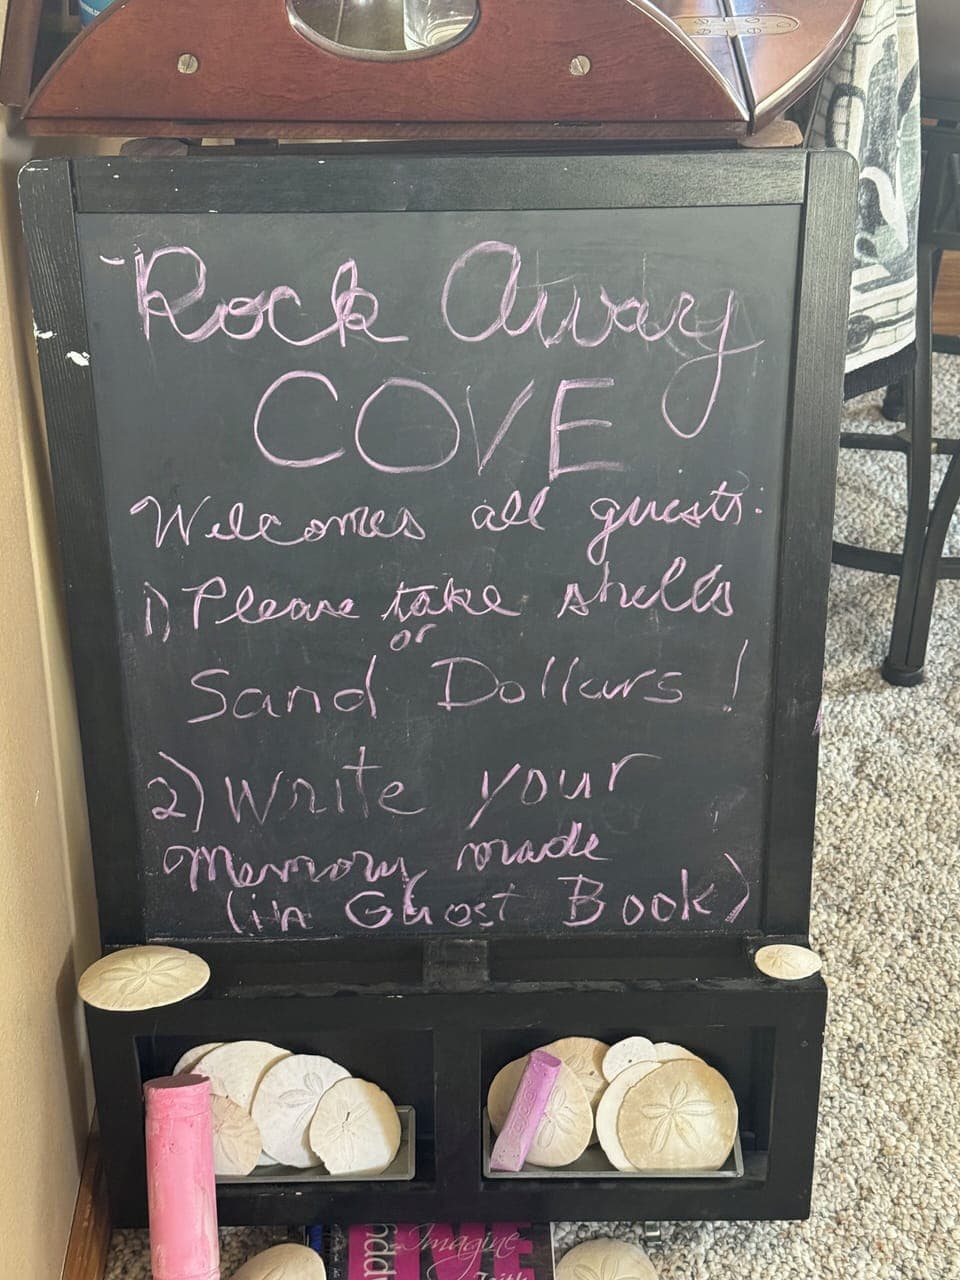 Rock Away
COVE
Welcomes all guests:
1) Please take shells
or
Sand Dollars !
2) Write your
Memory made
(in Ghost Book)
Imagine
Faith